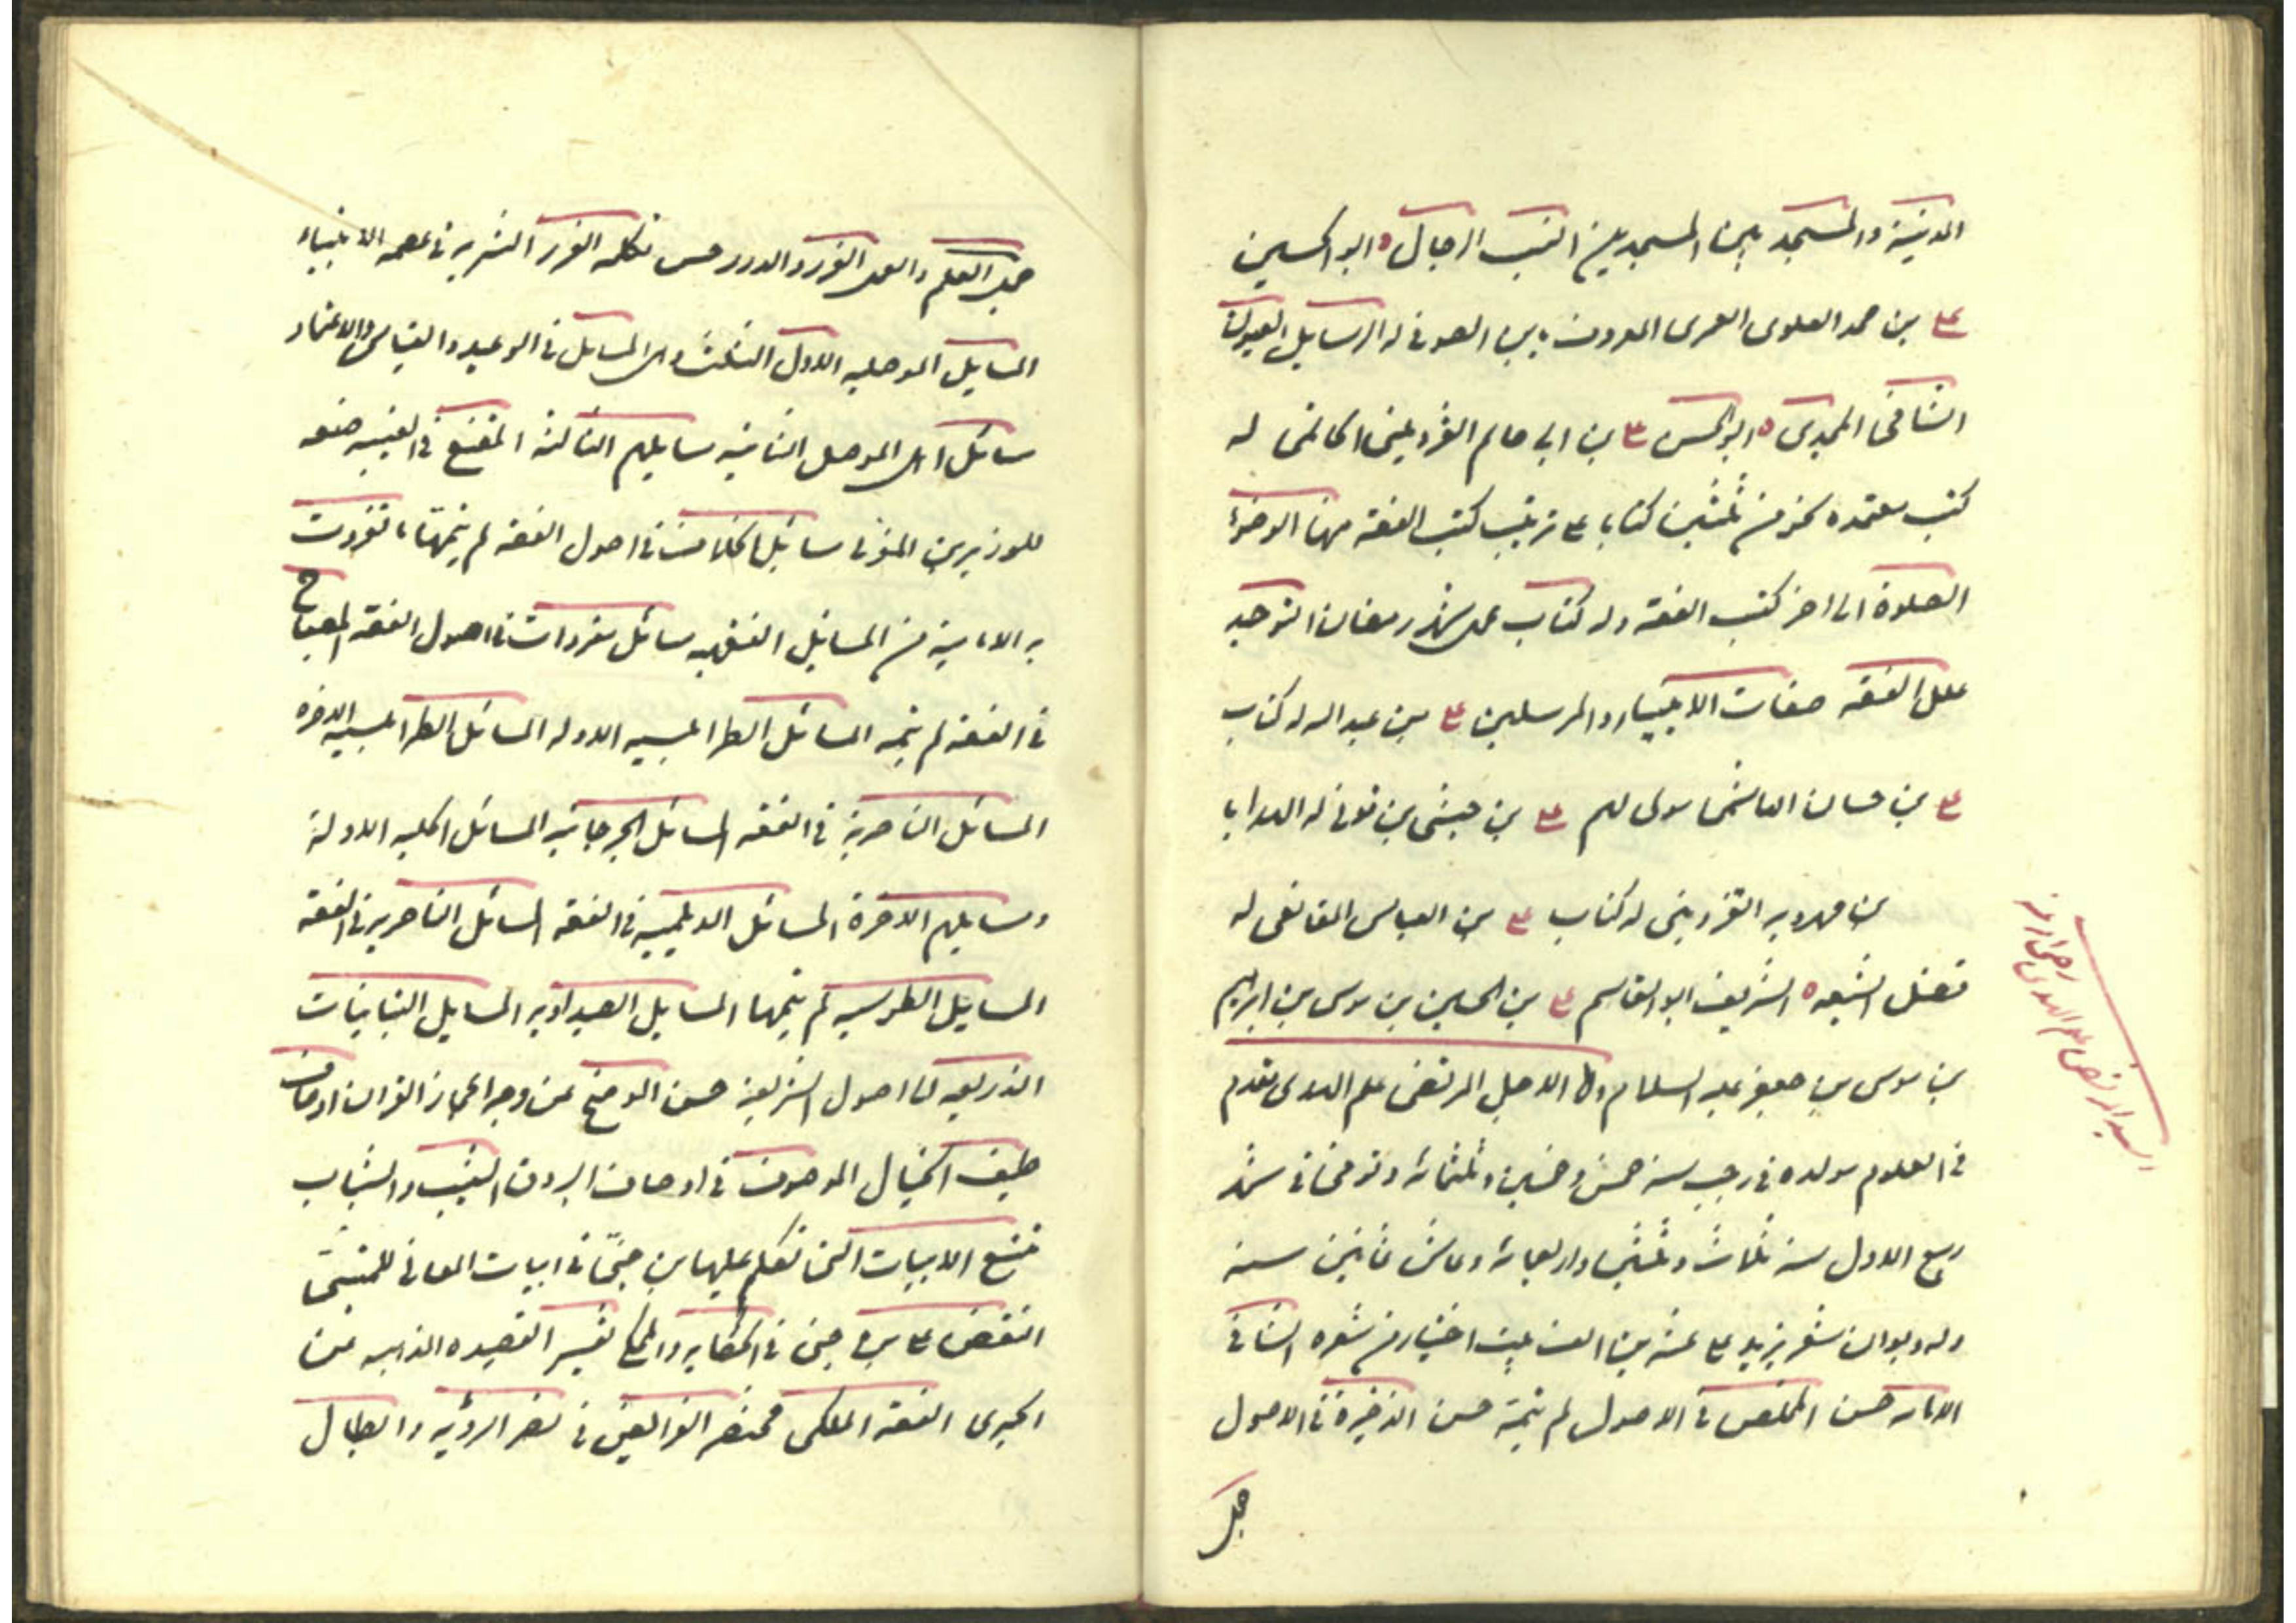 المدينة والمسجد بين المسجدين النسب الرجال ٥ ابو الحسين
علي بن محمد العلوى العمرى المعروف بابن الصوفى له الرسايل العيون
الشافى المجدى ٥ ابو الحسن علي بن ابى حاتم القزوينى الحاتمى له
كتب معتمده نحو من ثلثين كتابا على ترتيب كتب الفقه منها الوضوء
الصلوة الى اخر كتب الفقه وله كتاب عمل شهر رمضان التوحيد
علل الفقه صفات الانبياء والمرسلين علي بن عبد الله له كتاب
علي بن حسان الهاشمى مولى لهم علي بن حبشى بن قونى له الهدايا
بن مهدويه القزوينى له كتاب علي بن العباس المقانعى له
فضل الشيعه ٥ الشريف ابو القاسم علي بن الحسين بن موسى بن ابراهيم
بن موسى بن جعفر عليه السلام الاجل المرتضى علم الهدى تقدم
فى العلوم مولده فى رجب سنه خمس وخمسين وثلثمائه وتوفى فى شهر
ربيع الاول سنه ثلاث وثلثين واربعمائه وعاش ثمانين سنه
وله ديوان شعر يزيد على عشرين الف بيت اختيار من شعره الشافى
الامامه حسن الملخص فى الاصول لم يتمه حسن الذخيرة فى الاصول
جمل
السيد المرتضى علم الهدى رضى الله عنه
جمل العلم والعمل الغرر والدرر حسن تكلمه الغرر التنزيه فى عصمه الانبياء
المسايل الموصليه الاول الثلث وهى المسايل فى الوعيد والقياس والاعتماد
مسائل اهل الموصل الثانيه مسايلهم الثالثه المقنع فى الغيبه صنعه
للوزير بن المغربى مسائل الخلاف فى اصول الفقه لم يتمها ما تفردت
به الاماميه من المسايل الفقهيه مسائل مفردات فى اصول الفقه المصباح
فى الفقه لم يتمه المسائل الطرابلسيه الاوله المسائل الطرابلسيه الاخره
المسائل الناصرية فى الفقه المسائل الجرجانيه المسائل الحلبيه الاولة
ومسايلهم الاخرة المسائل الديلميه فى الفقه المسائل الناصريه فى الفقه
المسايل الطوسيه لم يتمها المسايل الصيداويه المسايل التبانيات
الذريعه الى اصول الشريعة حسن الموضح عن وجه اعجاز القران اوصاف
طيف الخيال الموصوف فى اوصاف البروق الشيب والشباب
تتبع الابيات التى تكلم عليها بن جنى فى ابيات المعانى للمتنبى
النقض على بن جنى فى الحكايه والمحكى تفسير القصيده المذهبه عن
الحميرى الفقه الملكى مختصر الفرائض فى نصر الرؤيه وابطال